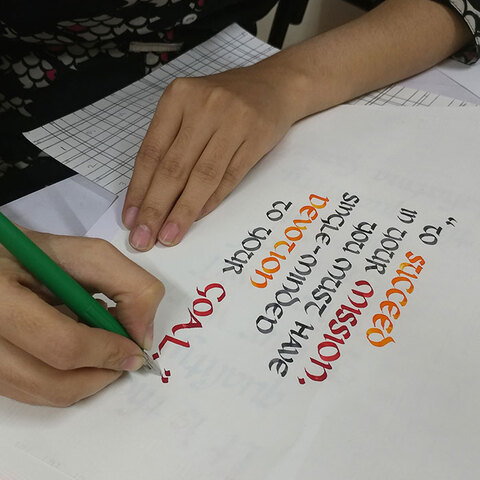 “to succeed
in your mission.
you must have
single-minded
devotion
to your
goal.”